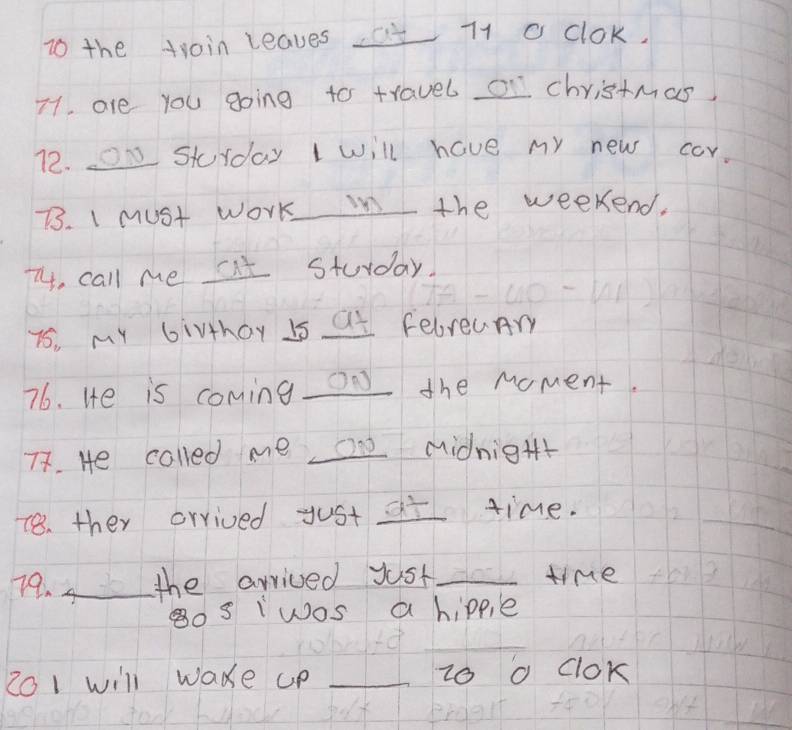 10 the train leaves at 11 o clok.
11. are you going to travel on christmas.
12. ON Sturday I will have my new car.
13. I must work in the weekend.
14. call me at Sturday.
15. my birthay is at FebreuAry
16. He is coming ON the moment.
17. He called me on midnight
18. they arrived just at time.
19. ____ the arrived just ____ time
80s i was a hippie
20 I will wake up ____ 10 o clok